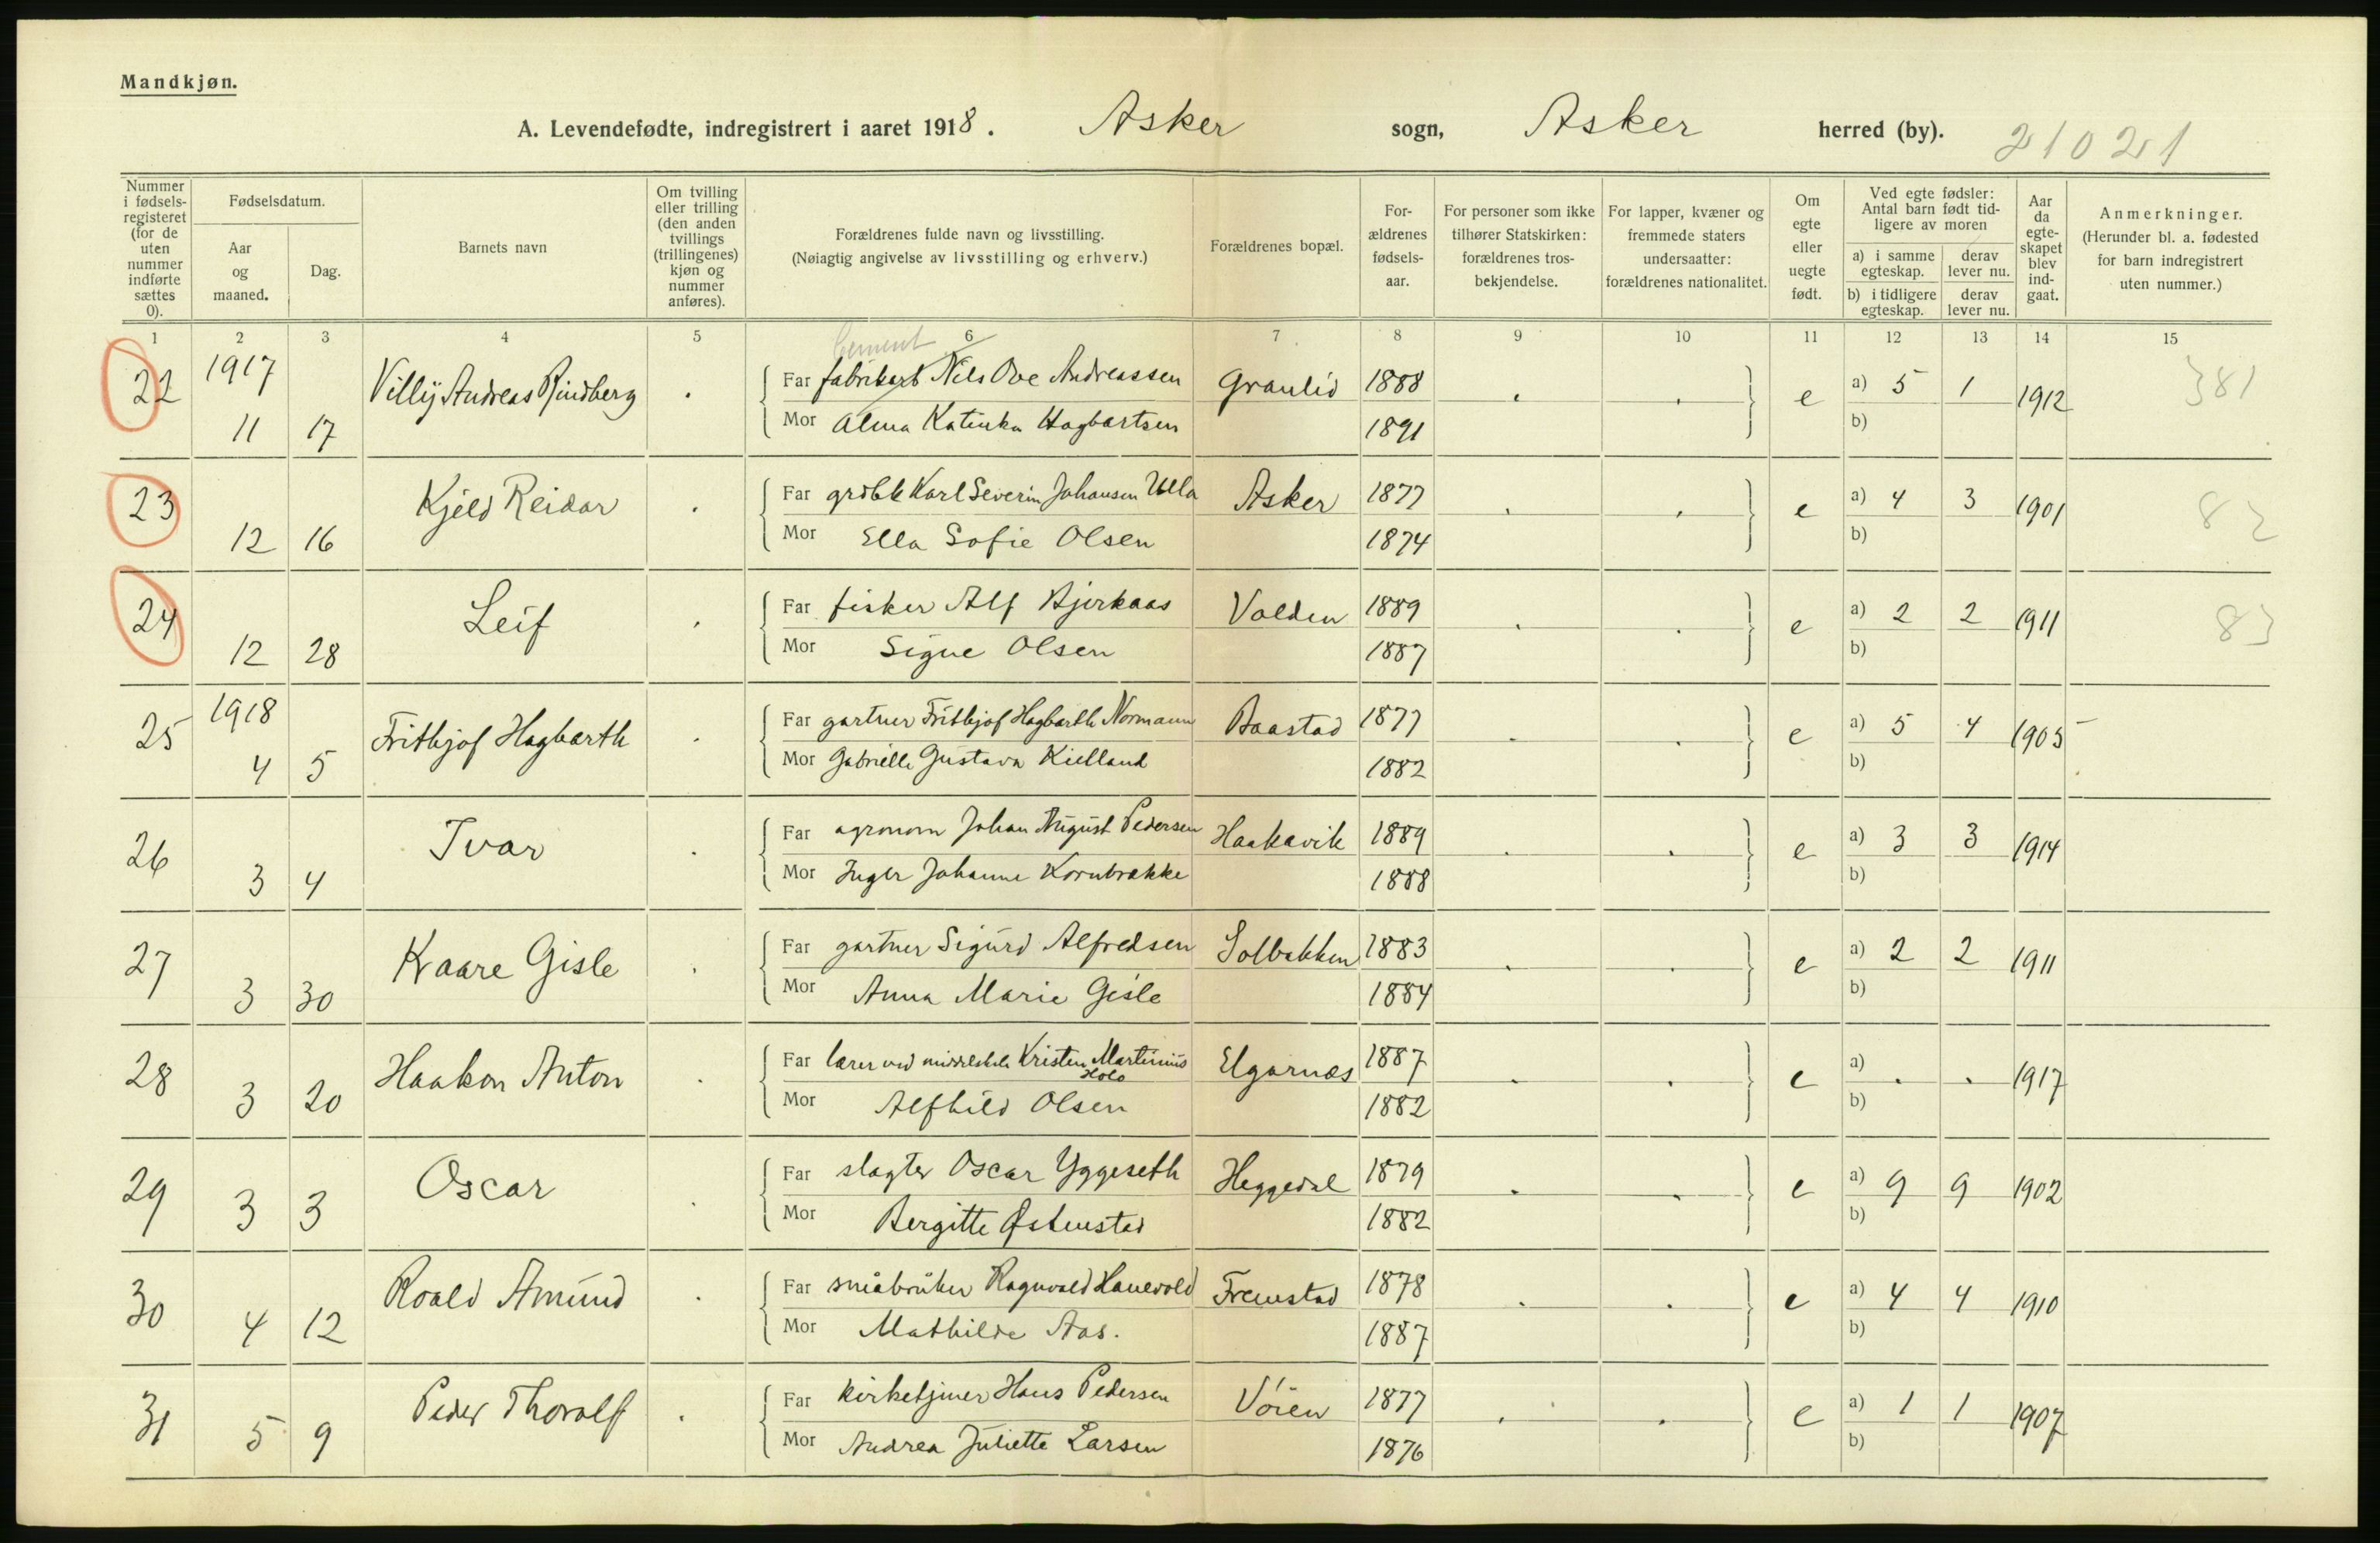 Mandkjøn.
A. Levendefødte, indregistrert i aaret 1918. Asker sogn, Asker herred (by). 21021
Nummer i fødsels-registeret (for de uten nummer indførte sættes 0).
Fødselsdatum.
Aar og maaned.
Dag.
Barnets navn
Om tvilling eller trilling (den anden tvillings (trillingenes) kjøn og nummer anføres).
Forældrenes fulde navn og livsstilling.
(Nøiagtig angivelse av livsstilling og erhverv.)
Forældrenes bopæl.
For-ældrenes fødsels-aar.
For personer som ikke tilhører Statskirken: forældrenes tros-bekjendelse.
For lapper, kvæner og fremmede staters undersaatter: forældrenes nationalitet.
Om egte eller uegte født.
Ved egte fødsler: Antal barn født tid-ligere av moren
a) i samme egteskap. derav lever nu.
b) i tidligere egteskap. derav lever nu.
Aar da egte-skapet blev ind-gaat.
Anmerkninger.
(Herunder bl. a. fødested for barn indregistrert uten nummer.)
1 2 3 4 5 6 7 8 9 10 11 12 13 14 15
Cement
22 1917 11 17 Villy Andreas Rindberg . Far fabrikarb Nils Ove Andreassen Graulid 1888 . . e a) 5 1 1912 381
Mor Alma Katinka Hagbartsen 1891 b)
23 12 16 Kjeld Reidar . Far Karl Severin Johansen Ulla Asker 1877 . . e a) 4 3 1901 82
Mor Ella Sofie Olsen 1874 b)
24 12 28 Leif . Far fisker Alf Bjerkaas Valden 1889 . . e a) 2 2 1911 83
Mor Signe Olsen 1887 b)
25 1918 4 5 Frithjof Hagbarth . Far gartner Frithjof Hagbarth Normann Baastad 1877 . . e a) 5 4 1905
Mor Gabrielle Gustava Kielland 1882 b)
26 3 4 Ivar . Far agronom Johan August Pedersen Haakavik 1889 . . e a) 3 3 1914
Mor Inger Johanne Kornbrække 1888 b)
27 3 30 Kaare Gisle . Far gartner Sigurd Alfredsen Solbakken 1883 . . e a) 2 2 1911
Mor Anna Marie Gisle 1884 b)
28 3 20 Haakon Anton . Far lærer ved middelskole Kristen Martinius Holo Elgarnæs 1887 . . e a) . . 1917
Mor Alfhild Olsen 1882 b)
29 3 3 Oscar . Far slagter Oscar Yggeseth Heggedal 1879 . . e a) 9 9 1902
Mor Bergitte Østenstad 1882 b)
30 4 12 Roald Amund . Far småbruker Ragnvald Hanevold Fremstad 1878 . . e a) 4 4 1910
Mor Mathilde Aas. 1887 b)
31 5 9 Peder Thoralf . Far kirketjener Hans Pedersen Vöien 1877 . . e a) 1 1 1907
Mor Andrea Juliette Larsen 1876 b)